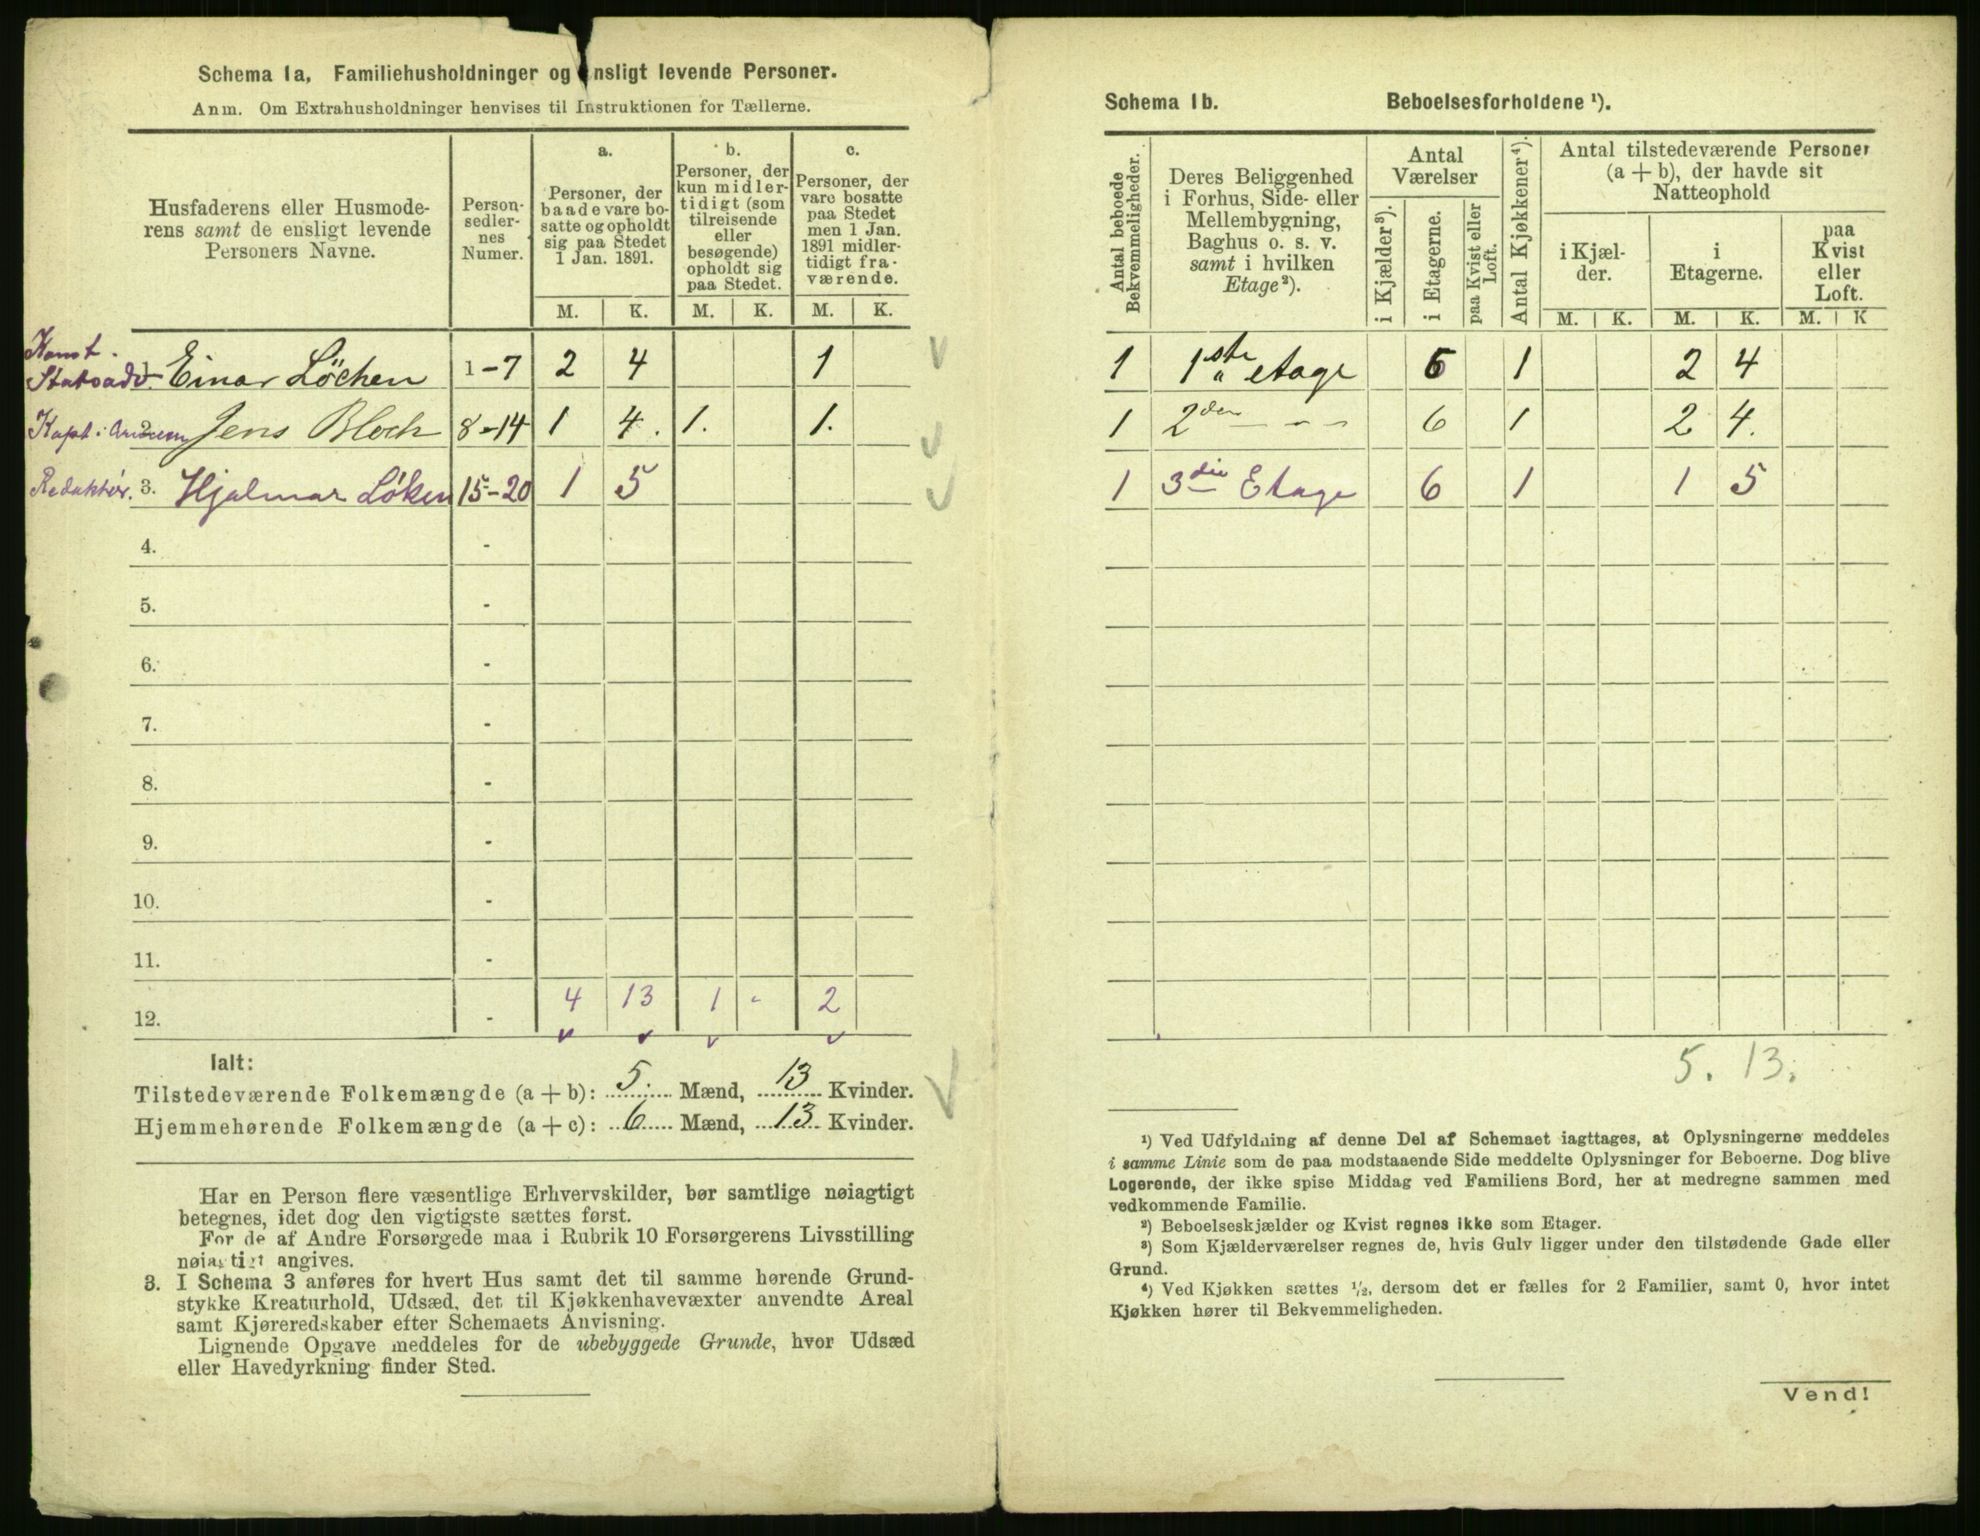 Schema 1a. Familiehusholdninger og ensligt levende Personer.
Anm. Om Extrahusholdninger henvises til Instruktionen for Tællerne.
Husfaderens eller Husmode-
rens samt de ensligt levende
Personers Navne.
Person-
sedler-
nes
Numer.
a.
Personer, der
baade vare bo-
satte og opholdt
sig paa Stedet
1 Jan. 1891.
b.
Personer, der
kun midler-
tidigt (som
tilreisende
eller
besøgende)
opholdt sig
paa Stedet.
c.
Personer, der
vare bosatte
paa Stedet
men 1 Jan.
1891 midler-
tidigt fra-
værende.
M. K. M. K. M. K.
Konst.
Statsadv. Einar Löchen 1-7 2 4 1
Kapt. i Jens Bloch 8-14 1 4. 1. 1.
Redaktör. 3. Hjalmar Löken 15-20 1 5
4. -
5. -
6. -
7. -
8. -
9. -
10. -
11. -
12. - 4 13 1 - 2
Ialt:
Tilstedeværende Folkemængde (a + b): 5. Mænd, 13 Kvinder.
Hjemmehørende Folkemængde (a + c): 6 Mænd, 13 Kvinder.
Har en Person flere væsentlige Erhvervskilder, bør samtlige nøiagtigt
betegnes, idet dog den vigtigste sættes først.
For de af Andre Forsørgede maa i Rubrik 10 Forsørgerens Livsstilling
nøiagtigt angives.
3. I Schema 3 anføres for hvert Hus samt det til samme hørende Grund-
stykke Kreaturhold, Udsæd, det til Kjøkkenhavevæxter anvendte Areal
samt Kjøreredskaber efter Schemaets Anvisning.
Lignende Opgave meddeles for de ubebyggede Grunde, hvor Udsæd
eller Havedyrkning finder Sted.
Schema 1b. Beboelsesforholdene ¹).
Antal beboede
Bekvemmeligheder.
Deres Beliggenhed
i Forhus, Side- eller
Mellembygning,
Baghus o. s. v.
samt i hvilken
Etage²).
Antal
Værelser
i Kjælder³).
i Etagerne.
paa Kvist eller
Loft.
Antal Kjøkkener⁴).
Antal tilstedeværende Personer
(a + b), der havde sit
Natteophold
i Kjæl-
der.
i
Etagerne.
paa
Kvist
eller
Loft.
M. K. M. K. M. K
1 1ste etage 6 1 2 4
1 2den - - - 6 1 2 4.
1 3die Etage 6 1 1 5
5. 13.
¹) Ved Udfyldning af denne Del af Schemaet iagttages, at Oplysningerne meddeles
i samme Linie som de paa modstaaende Side meddelte Oplysninger for Beboerne. Dog blive
Logerende, der ikke spise Middag ved Familiens Bord, her at medregne sammen med
vedkommende Familie.
²) Beboelseskjælder og Kvist regnes ikke som Etager.
³) Som Kjælderværelser regnes de, hvis Gulv ligger under den tilstødende Gade eller
Grund.
⁴) Ved Kjøkken sættes ¹/₂, dersom det er fælles for 2 Familier, samt 0, hvor intet
Kjøkken hører til Bekvemmeligheden.
Vend!